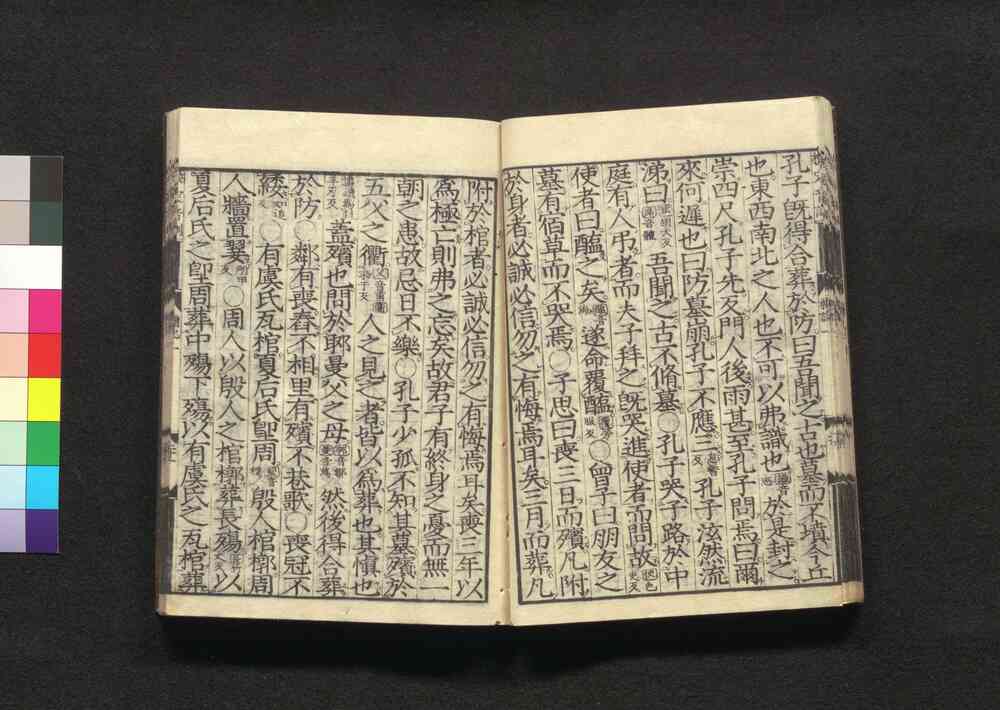 孔子旣得合葬於防曰吾聞之古也墓而不墳今丘
也東西南北之人也不可以弗識也於是封之
崇四尺孔子先反門人後雨甚至孔子問焉曰爾
來何遲也曰防墓崩孔子不應三孔子泫然流
涕曰吾聞之古不脩墓○孔子哭子路於中
庭有人弔者而夫子拜之旣哭進使者而問故
使者曰醢之矣遂命覆醢○曾子曰朋友之
墓有宿草而不哭焉○子思曰喪三日而殯凡附
於身者必誠必信勿之有悔焉耳矣三月而葬凡
附於棺者必誠必信勿之有悔焉耳矣喪三年以
爲極亡則弗之忘矣故君子有終身之憂而無一
朝之患故忌日不樂○孔子少孤不知其墓殯於
五父之衢人之見之者皆以爲葬也其愼也
蓋殯也問於郰曼父之母然後得合葬
於防○鄰有喪舂不相里有殯不巷歌○喪冠不
緌○有虞氏瓦棺夏后氏堲周殷人棺槨周
人牆置翣○周人以殷人之棺槨葬長殤以
夏后氏之堲周葬中殤下殤以有虞氏之瓦棺葬